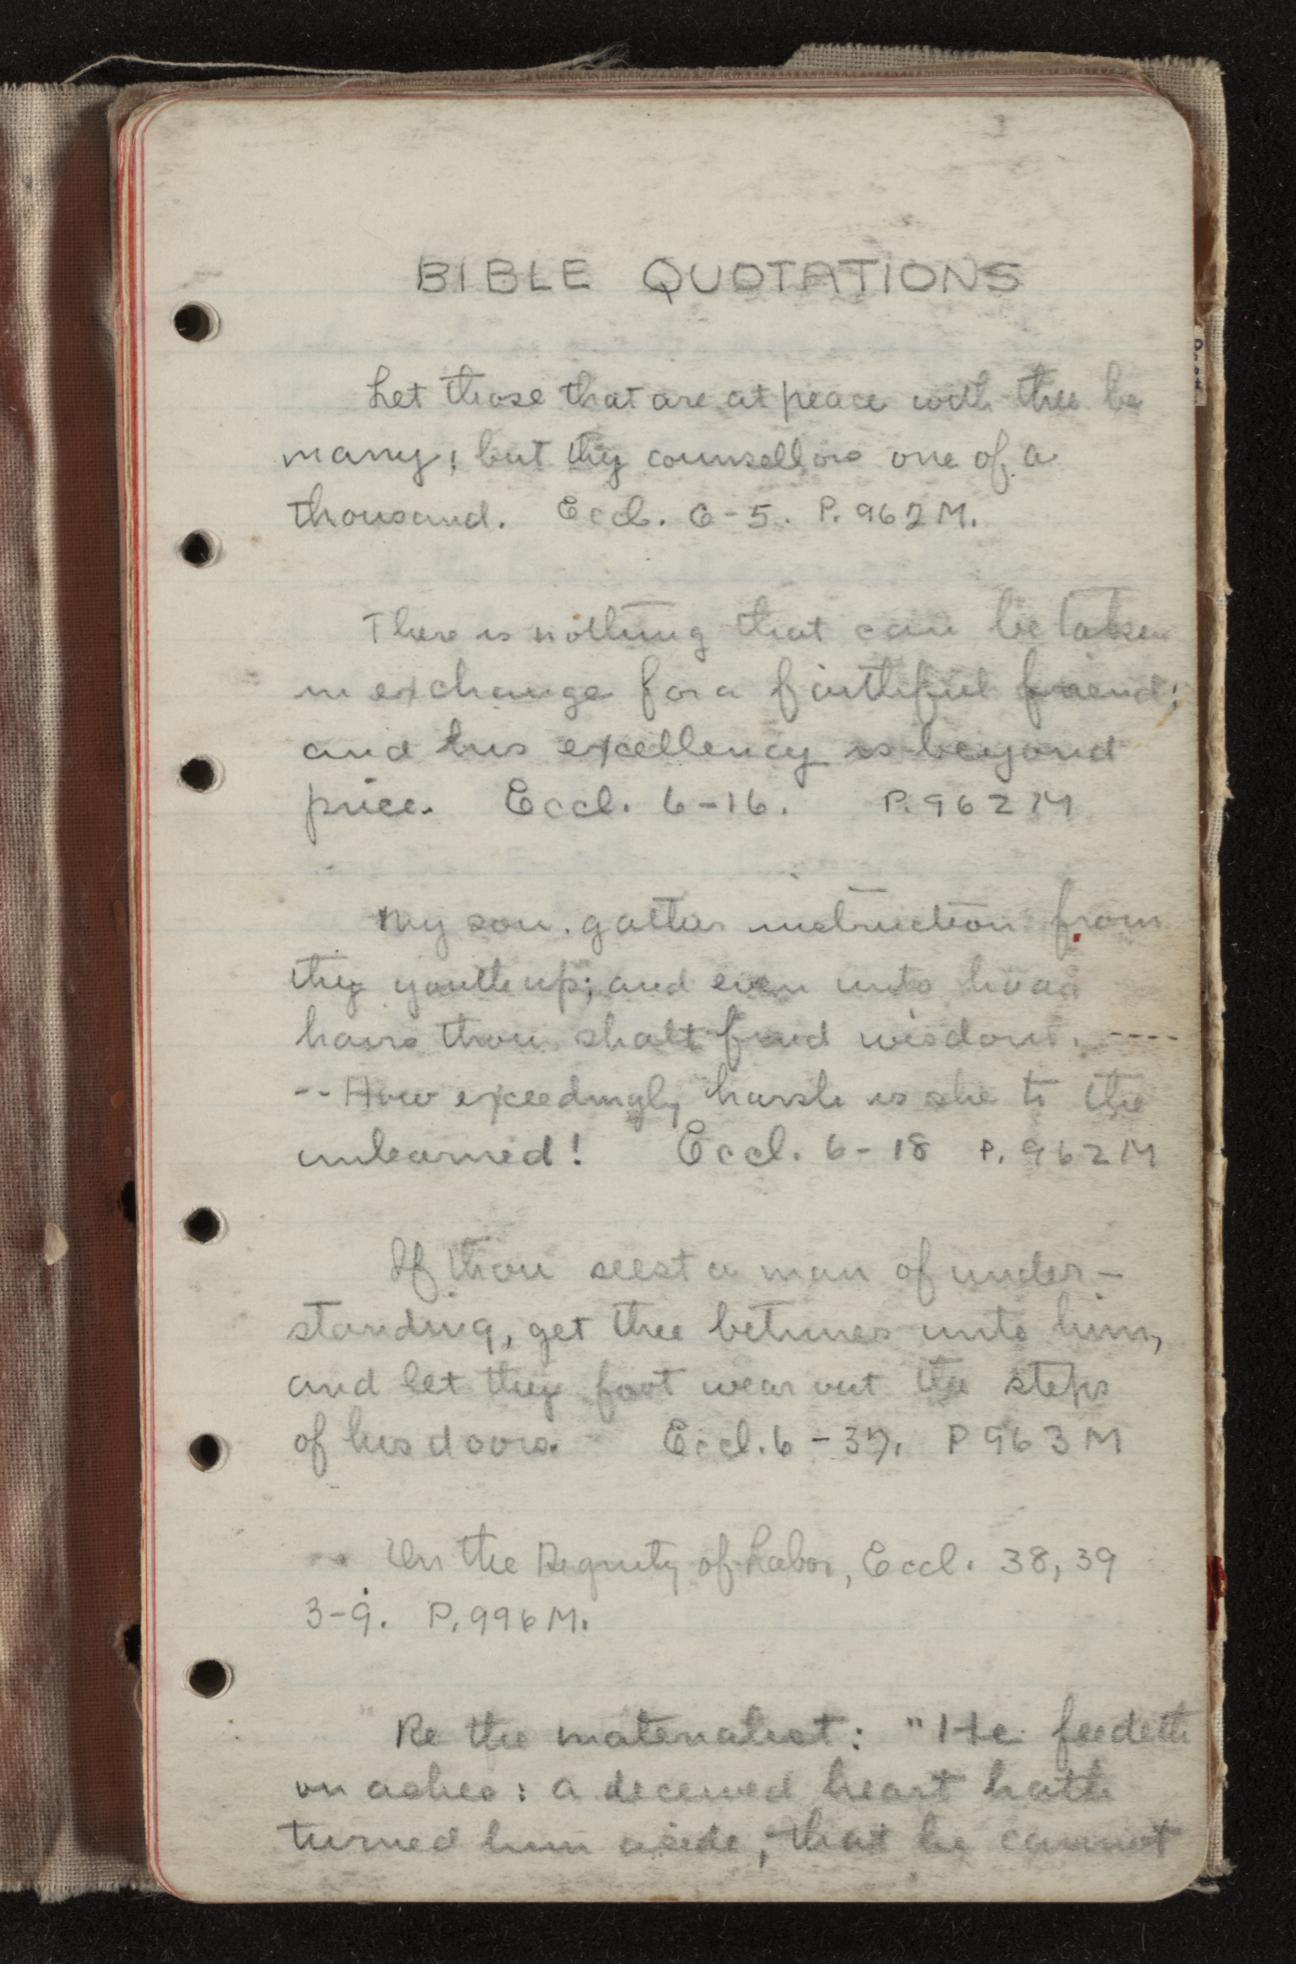 BIBLE QUOTATIONS
Let those that are at peace with thee be
many; but thy counsellors one of a
thousand. Eccl. 6-5. P. 962 M.
There is nothing that can be taken
in exchange for a faithful friend;
and his excellency is beyond
price. Eccl. 6-16. P. 962 M
My son, gather instruction from
thy youth up; and even unto hoar
hairs thou shalt find wisdom. ----
-- How exceedingly harsh is she to the
unlearned! Eccl. 6-18 P. 962 M
If thou seest a man of under-
standing, get thee betimes unto him,
and let thy foot wear out the steps
of his doors. Eccl. 6-37. P 963 M
On the Dignity of Labor, Eccl. 38, 39
3-9. P. 996 M.
Re the materialist: "He feedeth
on ashes: a deceived heart hath
turned him aside, that he cannot